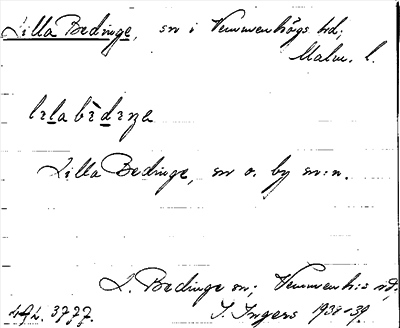 Lilla Bedinge, sn i Vemmenhögs hd;
Malm. l.
Lilla Bedinge, sn o. by sn:n.
L. Bedinge sn; Vemmenh:s hd;
I. Ingers 1938-39.